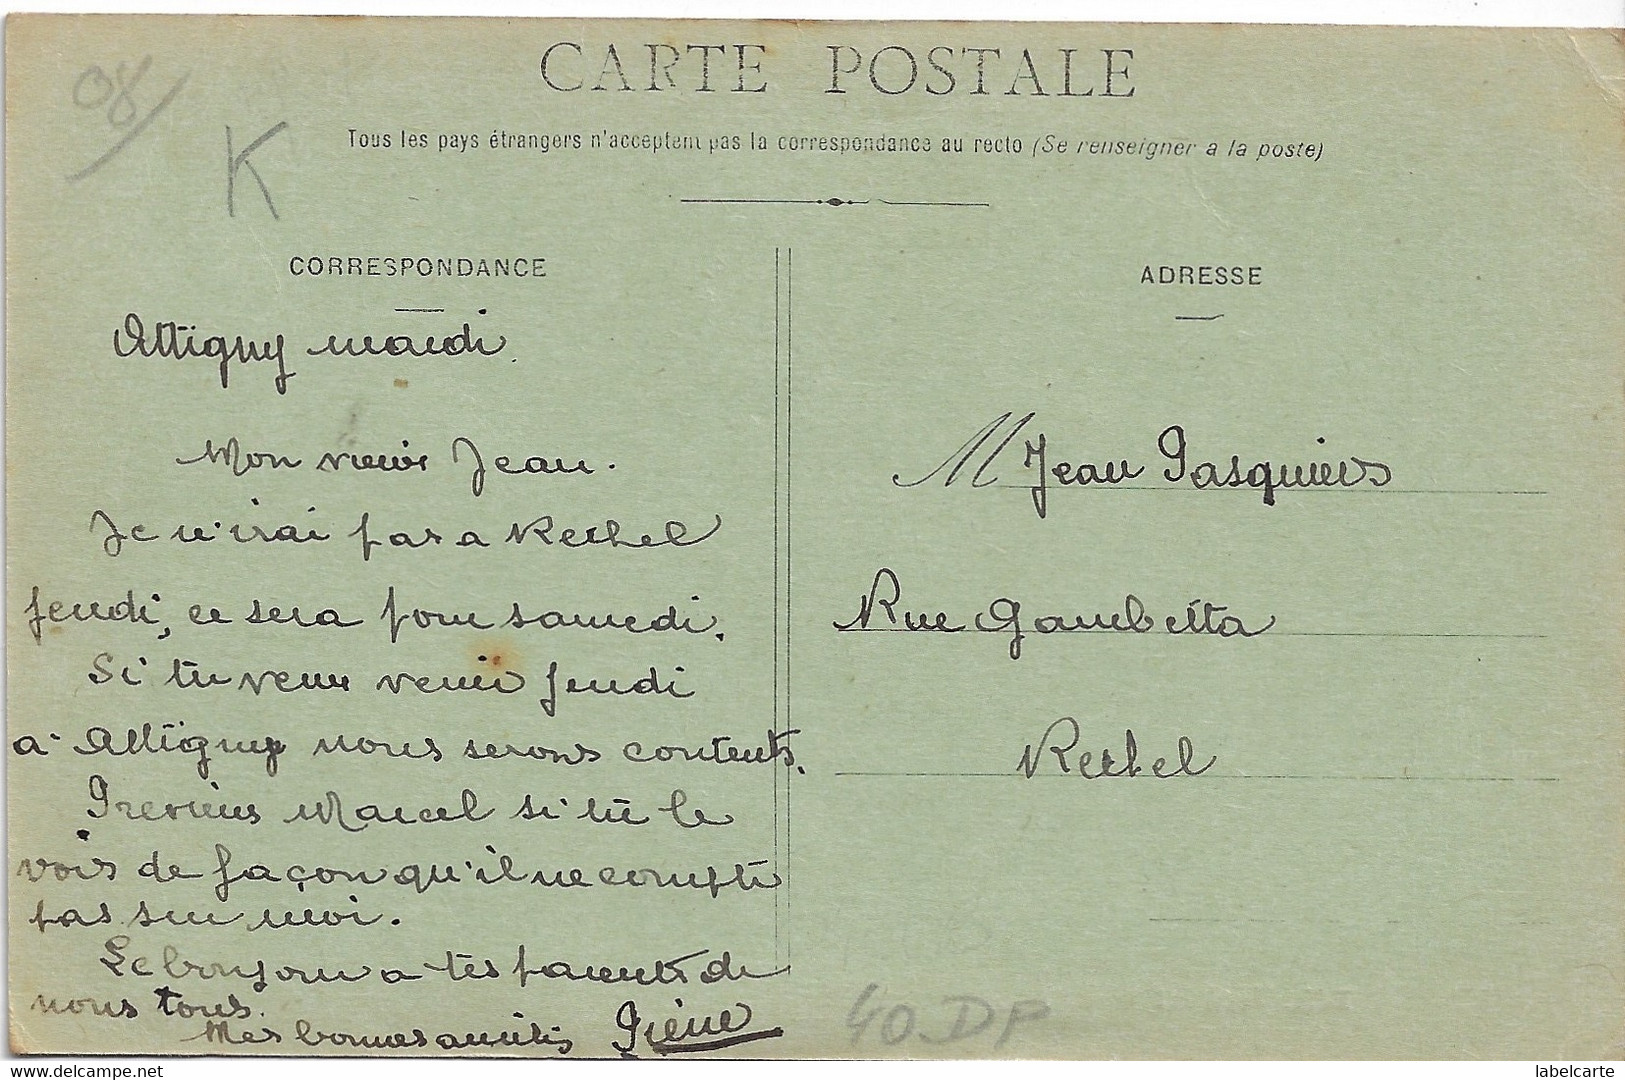 08
K
CARTE POSTALE
Tous les pays étrangers n'acceptent pas la correspondance au recto (Se renseigner a la poste)
CORRESPONDANCE
Attigny mardi.
Mon vieux Jean.
Je n'irai pas a Rethel
jeudi, ce sera pour samedi.
Si tu veux venir jeudi
a Attigny nous serons contents.
Previens Marcel si tu le
vois de façon qu'il ne compte
pas sur moi.
Le bonjour a tes parents de
nous tous.
Mes bonnes amitiés Irène
ADRESSE
M Jean Pasquiers
Rue Gambetta
Rethel
40.DP
delcampe.net
labelcarte